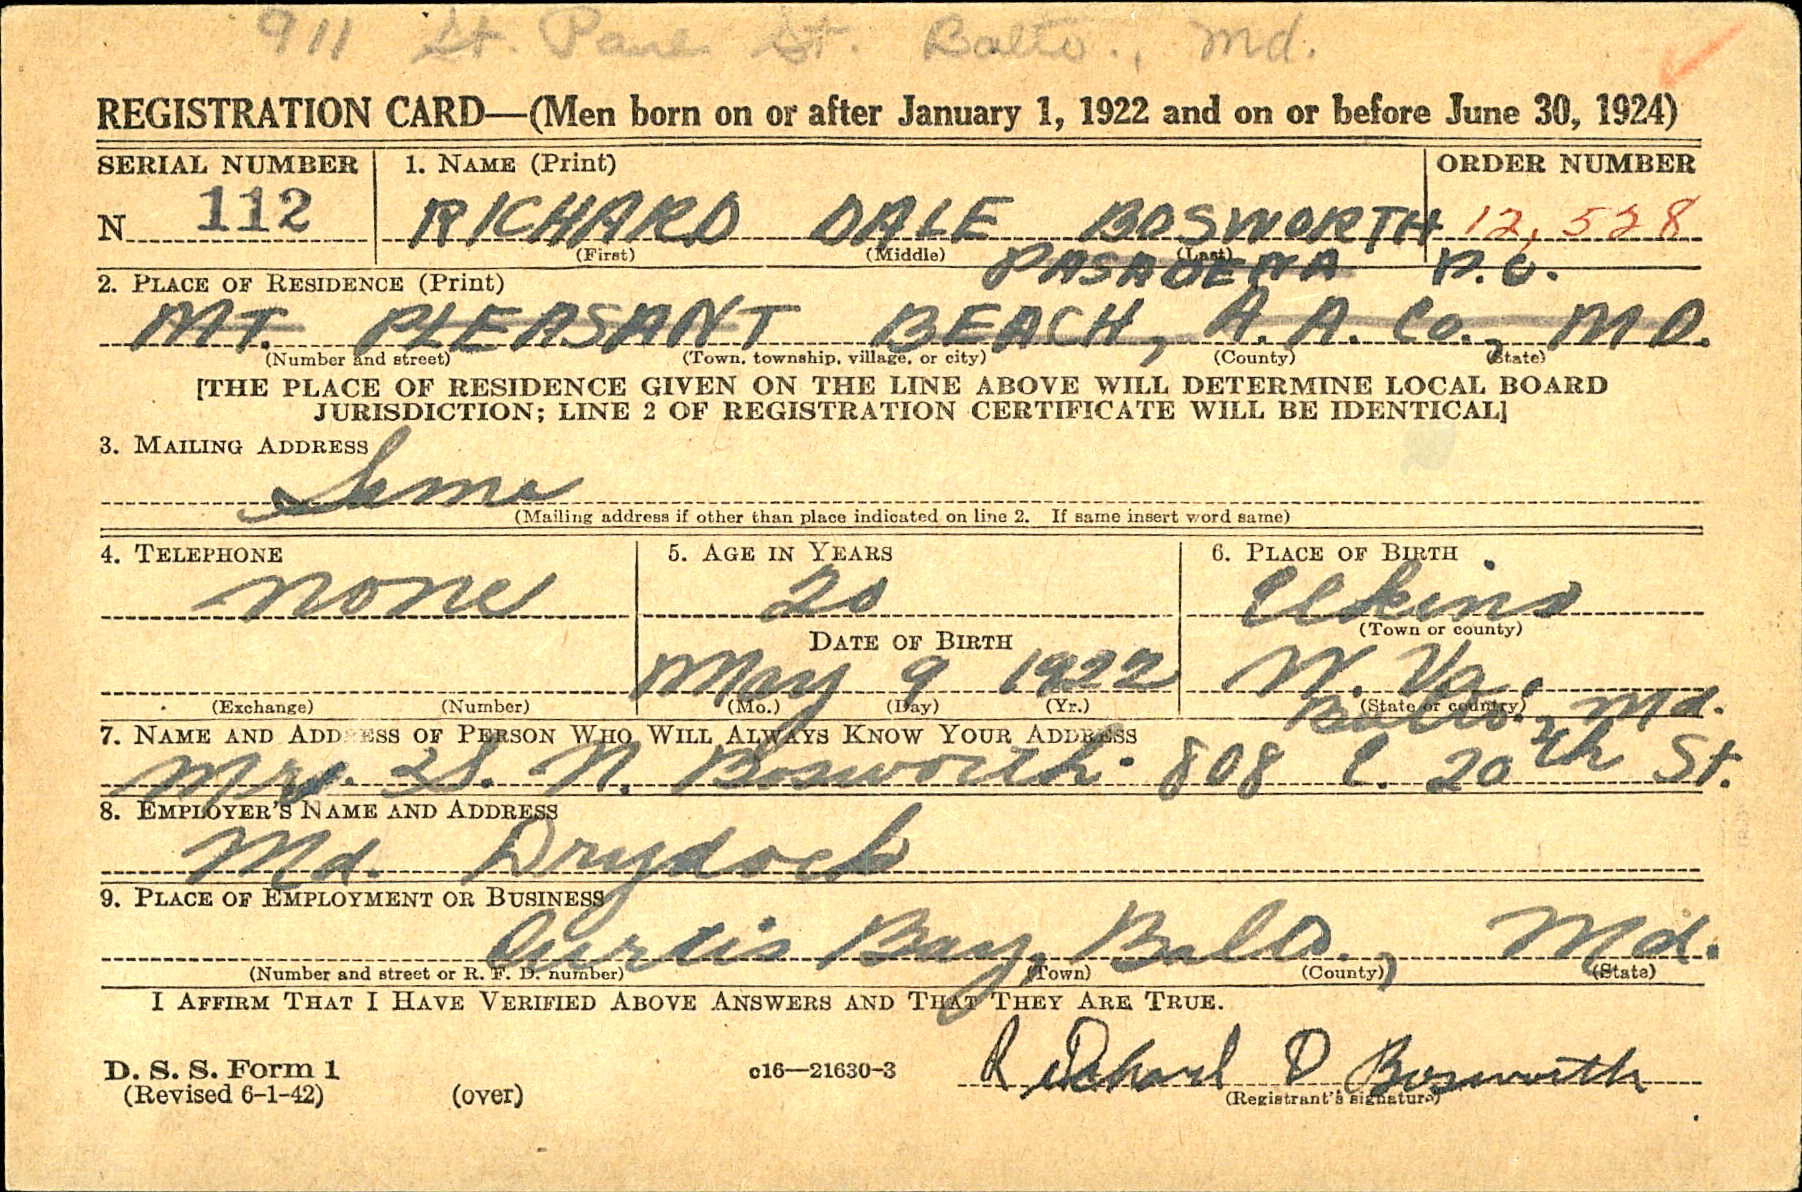 911 St. Paul St. Balto., Md.
REGISTRATION CARD—(Men born on or after January 1, 1922 and on or before June 30, 1924)
SERIAL NUMBER 1. NAME (Print) ORDER NUMBER
N 112 RICHARD DALE BOSWORTH 12,528
(First) (Middle) (Last)
PASADENA P.O.
2. PLACE OF RESIDENCE (Print)
MT. PLEASANT BEACH, A.A. Co., MD.
(Number and street) (Town, township, village, or city) (County) (State)
[THE PLACE OF RESIDENCE GIVEN ON THE LINE ABOVE WILL DETERMINE LOCAL BOARD
JURISDICTION; LINE 2 OF REGISTRATION CERTIFICATE WILL BE IDENTICAL]
3. MAILING ADDRESS
Same
(Mailing address if other than place indicated on line 2. If same insert word same)
4. TELEPHONE 5. AGE IN YEARS 6. PLACE OF BIRTH
none 20 Elkins
(Town or county)
DATE OF BIRTH
May 9 1922 W. Va.
(Exchange) (Number) (Mo.) (Day) (Yr.) (State or country)
Balto., Md.
7. NAME AND ADDRESS OF PERSON WHO WILL ALWAYS KNOW YOUR ADDRESS
Mrs. S. N. Bosworth. 808 E. 20th St.
8. EMPLOYER'S NAME AND ADDRESS
Md. Drydock
9. PLACE OF EMPLOYMENT OR BUSINESS
Curtis Bay, Balto., Md.
(Number and street or R. F. D. number) (Town) (County) (State)
I AFFIRM THAT I HAVE VERIFIED ABOVE ANSWERS AND THAT THEY ARE TRUE.
D. S. S. Form 1 c16—21630-3 Richard D Bosworth
(Revised 6-1-42) (over) (Registrant's signature)